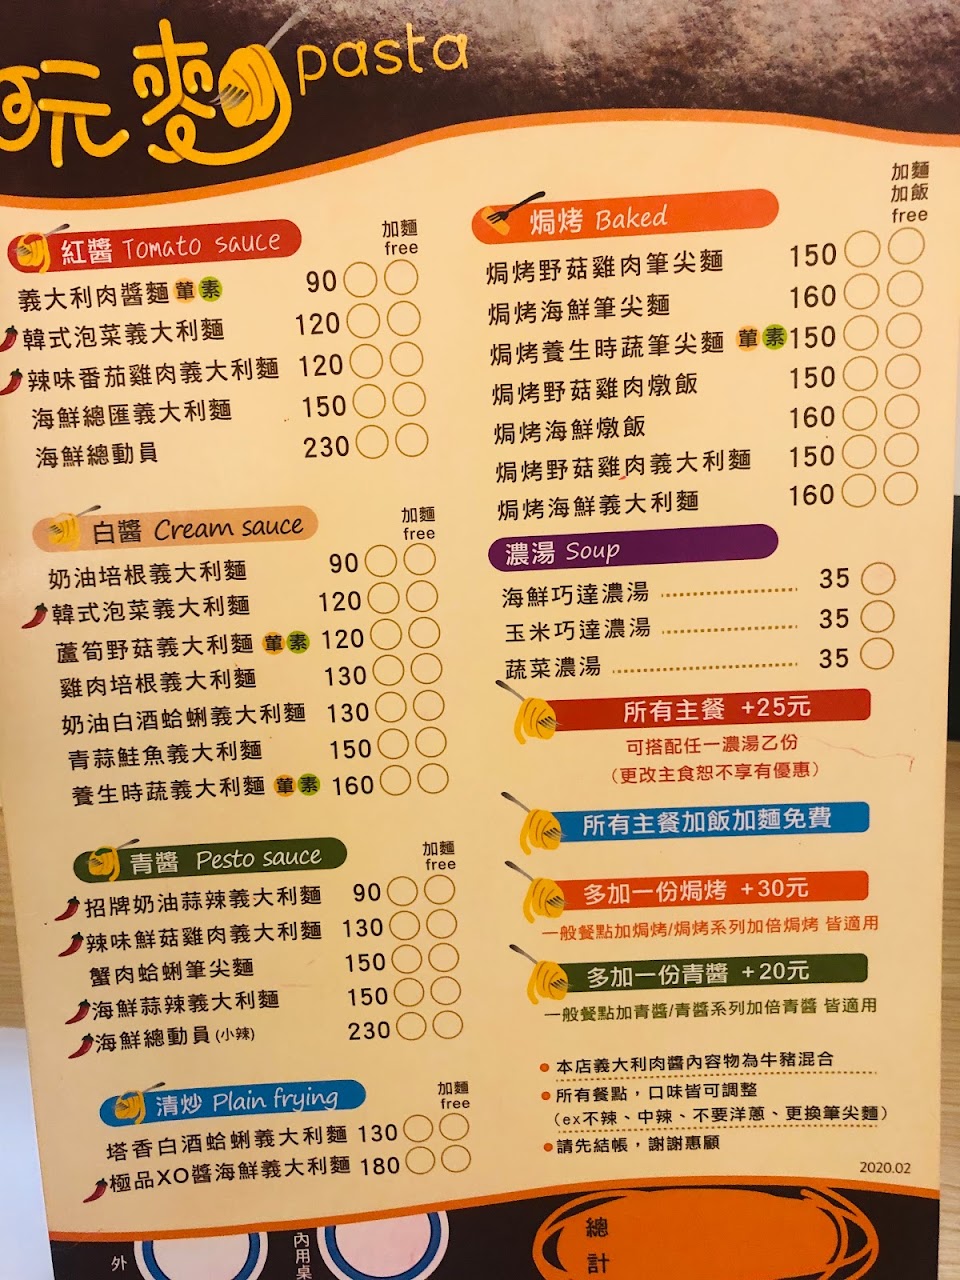 玩麵 pasta
紅醬 Tomato sauce 加麵 free
義大利肉醬麵 葷 素 90
韓式泡菜義大利麵 120
辣味番茄雞肉義大利麵 120
海鮮總匯義大利麵 150
海鮮總動員 230
白醬 Cream sauce 加麵 free
奶油培根義大利麵 90
韓式泡菜義大利麵 120
蘆筍野菇義大利麵 葷 素 120
雞肉培根義大利麵 130
奶油白酒蛤蜊義大利麵 130
青蒜鮭魚義大利麵 150
養生時蔬義大利麵 葷 素 160
青醬 Pesto sauce 加麵 free
招牌奶油蒜辣義大利麵 90
辣味鮮菇雞肉義大利麵 130
蟹肉蛤蜊筆尖麵 150
海鮮蒜辣義大利麵 150
海鮮總動員(小辣) 230
清炒 Plain frying 加麵 free
塔香白酒蛤蜊義大利麵 130
極品XO醬海鮮義大利麵 180
焗烤 Baked 加麵 加飯 free
焗烤野菇雞肉筆尖麵 150
焗烤海鮮筆尖麵 160
焗烤養生時蔬筆尖麵 葷 素 150
焗烤野菇雞肉燉飯 150
焗烤海鮮燉飯 160
焗烤野菇雞肉義大利麵 150
焗烤海鮮義大利麵 160
濃湯 Soup
海鮮巧達濃湯 35
玉米巧達濃湯 35
蔬菜濃湯 35
所有主餐 +25元
可搭配任一濃湯乙份
(更改主食恕不享有優惠)
所有主餐加飯加麵免費
多加一份焗烤 +30元
一般餐點加焗烤/焗烤系列加倍焗烤 皆適用
多加一份青醬 +20元
一般餐點加青醬/青醬系列加倍青醬 皆適用
本店義大利肉醬內容物為牛豬混合
所有餐點，口味皆可調整
(ex不辣、中辣、不要洋蔥、更換筆尖麵)
請先結帳，謝謝惠顧
2020.02
外
內用桌
總計